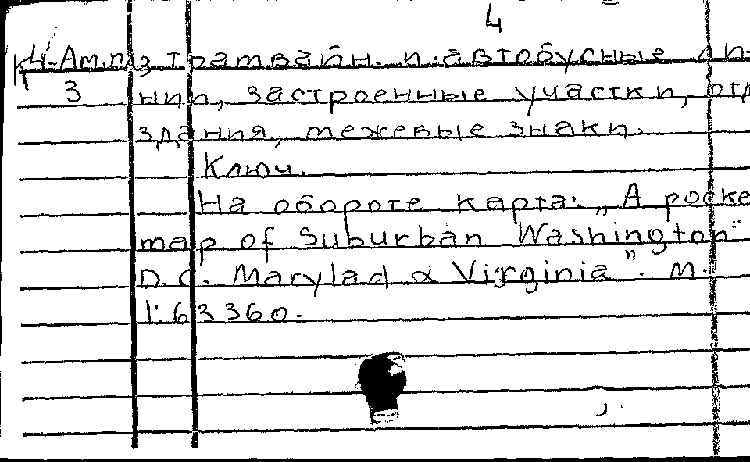 4
К 4-Ам.п, трамвайн. и автобусные ли-
3 нии, застроенные участки, отд.
здания, межевые знаки.
Ключ.
На обороте карта: „A pocke
map of Suburban Washington"
D.C. Marylad & Virginia". М.
1:63360.